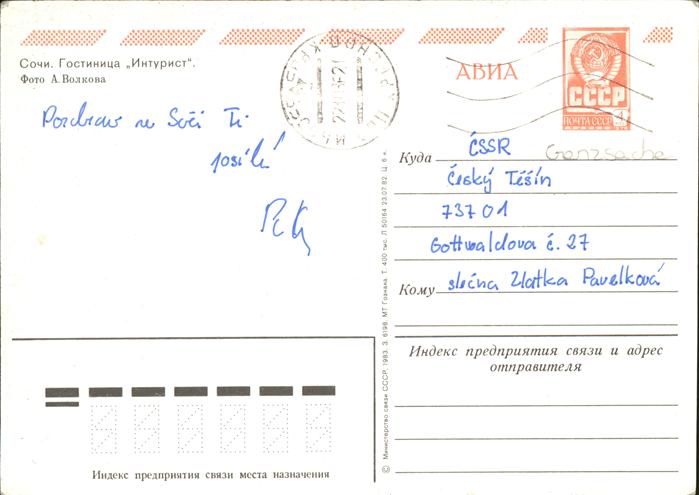 Сочи. Гостиница „Интурист“.
Фото А. Волкова
АВИА
СССР
ПОЧТА СССР
Pozdrav ze Soči Ti
posílá
Ganzsache
Куда ČSSR
Český Těšín
737 01
Gottwaldova č. 27
Кому slečna Zlatka Pavelková
Индекс предприятия связи и адрес
отправителя
Индекс предприятия связи места назначения
© Министерство связи СССР, 1983. З. 6198. МТ Гознака. Т. 400 тыс. Л 50164 23.07.82. Ц. 6 к.